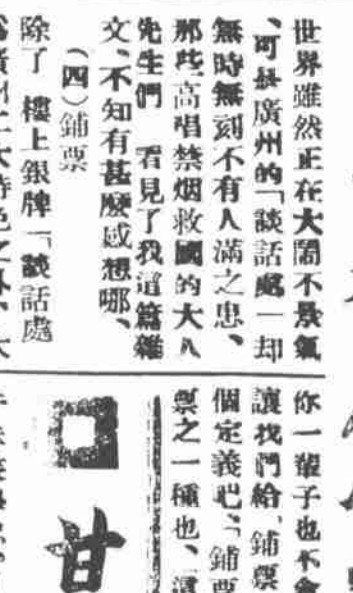 世界雖然正在大鬧不景氣
、可是廣州的「談話處」却
無時無刻不有人滿之患、
那些高唱禁烟救國的大人
先生們 看見了我這篇雜
文、不知有甚麼感想哪、
(四)鋪票
除了 樓上銀牌「談話處
二大特色之外、大
你一輩子也不會
讓我們給「鋪票
個定義吧、「鋪票
票之一種也、這
甘